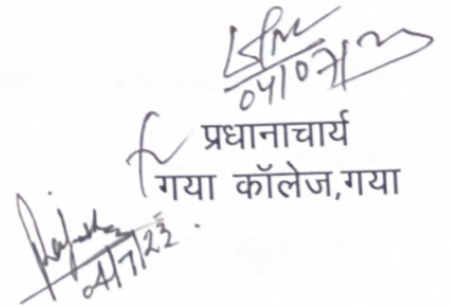 04/07/23
प्रधानाचार्य
गया कॉलेज,गया
04/7/23.